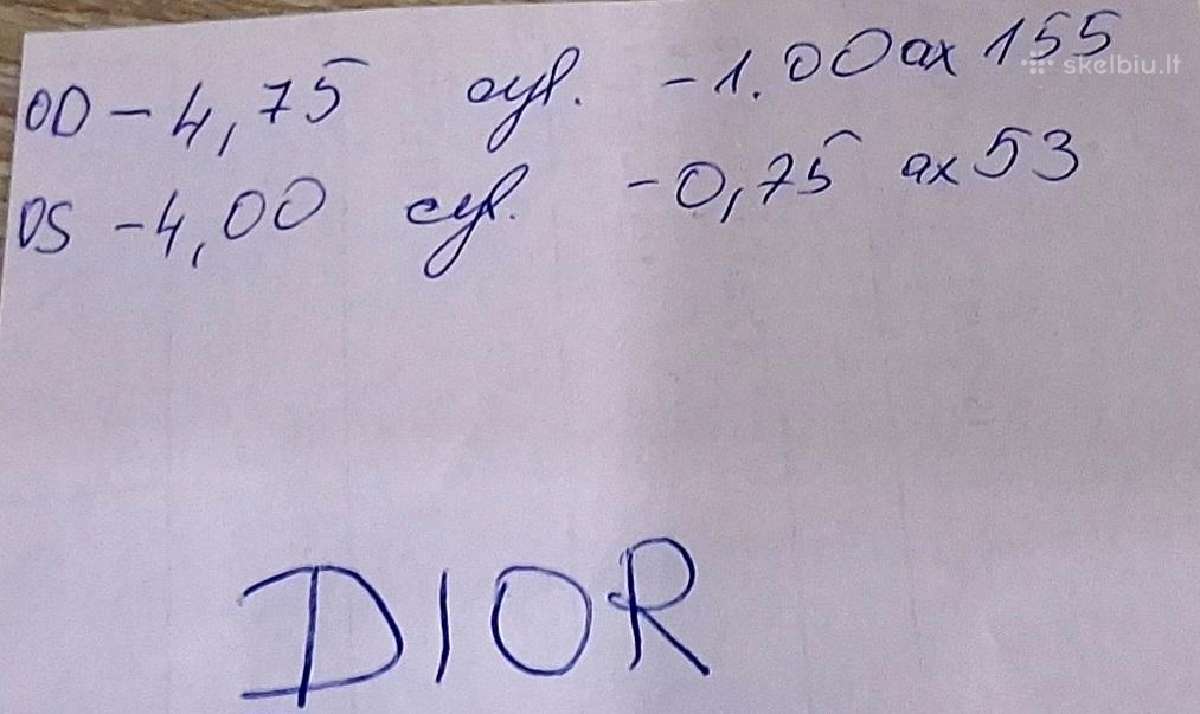 OD - 4,75 cyl. -1.00 ax 155
skelbiu.lt
OS -4,00 cyl. -0,75 ax 53
DIOR